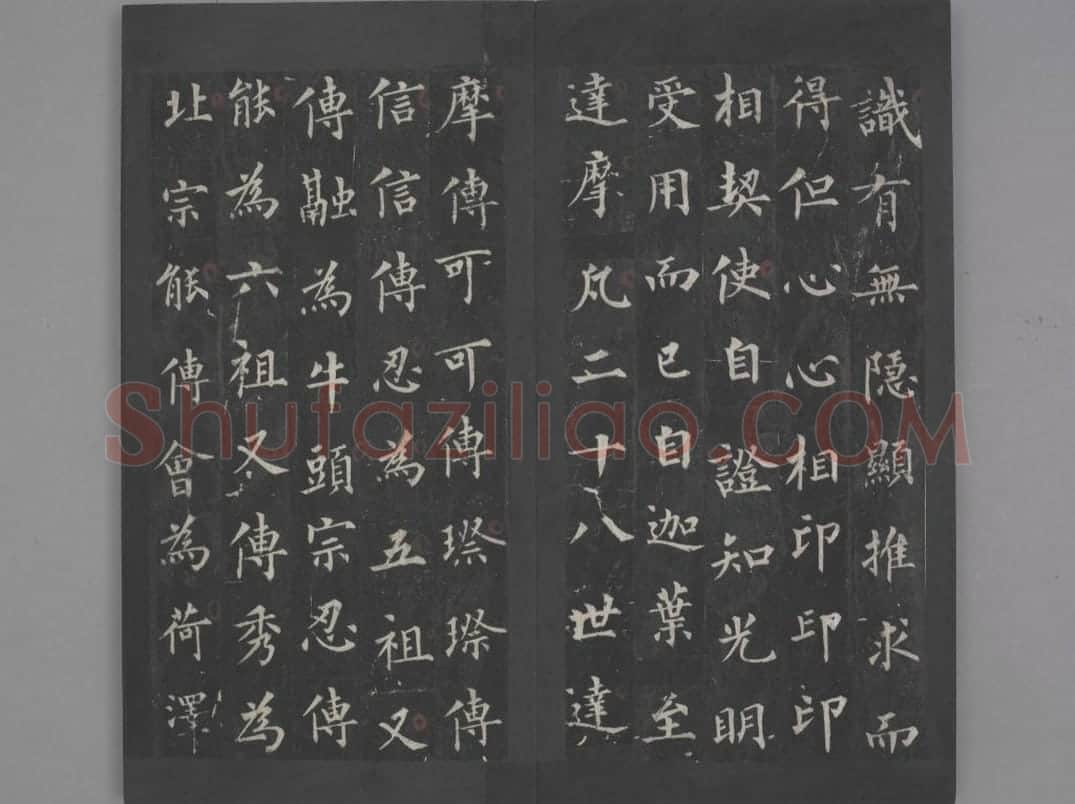 識有無隱顯推求而
得但心心相印印印
相契使自證知光明
受用而已自迦葉至
達摩凡二十八世達
摩傳可可傳璨璨傳
信信傳忍為五祖又
傳融為牛頭宗忍傳
能為六祖又傳秀為
北宗能傳會為荷澤
Shufaziliao.COM